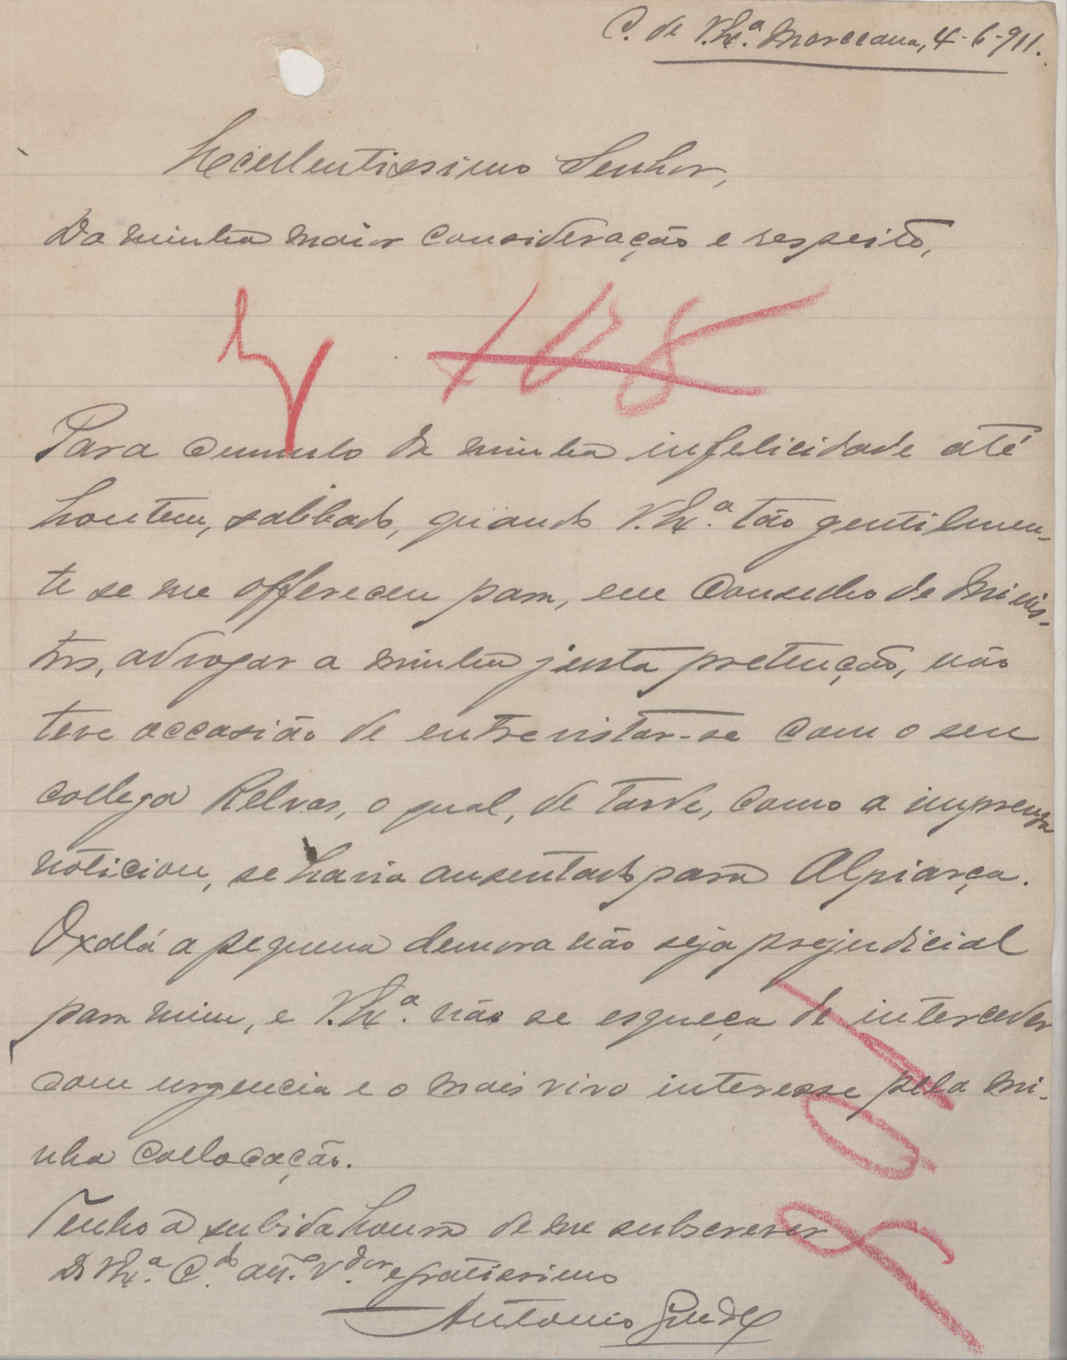 C. de V. Ex.ª Merceana, 4-6-911.
Excellentissimo Senhor,
Da minha maior consideração e respeito,
108
Para cumulo da minha infelicidade até
hontem, sabbado, quando V. Ex.ª tão gentilmen-
te se me offereceu para, em Conselho de Minis-
tros, advogar a minha justa pretenção, não
teve occasião de entrevistar-se com o seu
collega Relvas, o qual, de tarde, como a imprensa
noticiou, se havia ausentado para Alpiarça.
Oxalá a pequena demora não seja prejudicial
para mim, e V. Ex.ª não se esqueça de interceder
com urgencia e o mais vivo interesse pela mi-
nha collocação.
Tenho a subida honra de me subscrever
De V. Ex.ª C.do att.º V.dor e gratissimo
Antonio
108